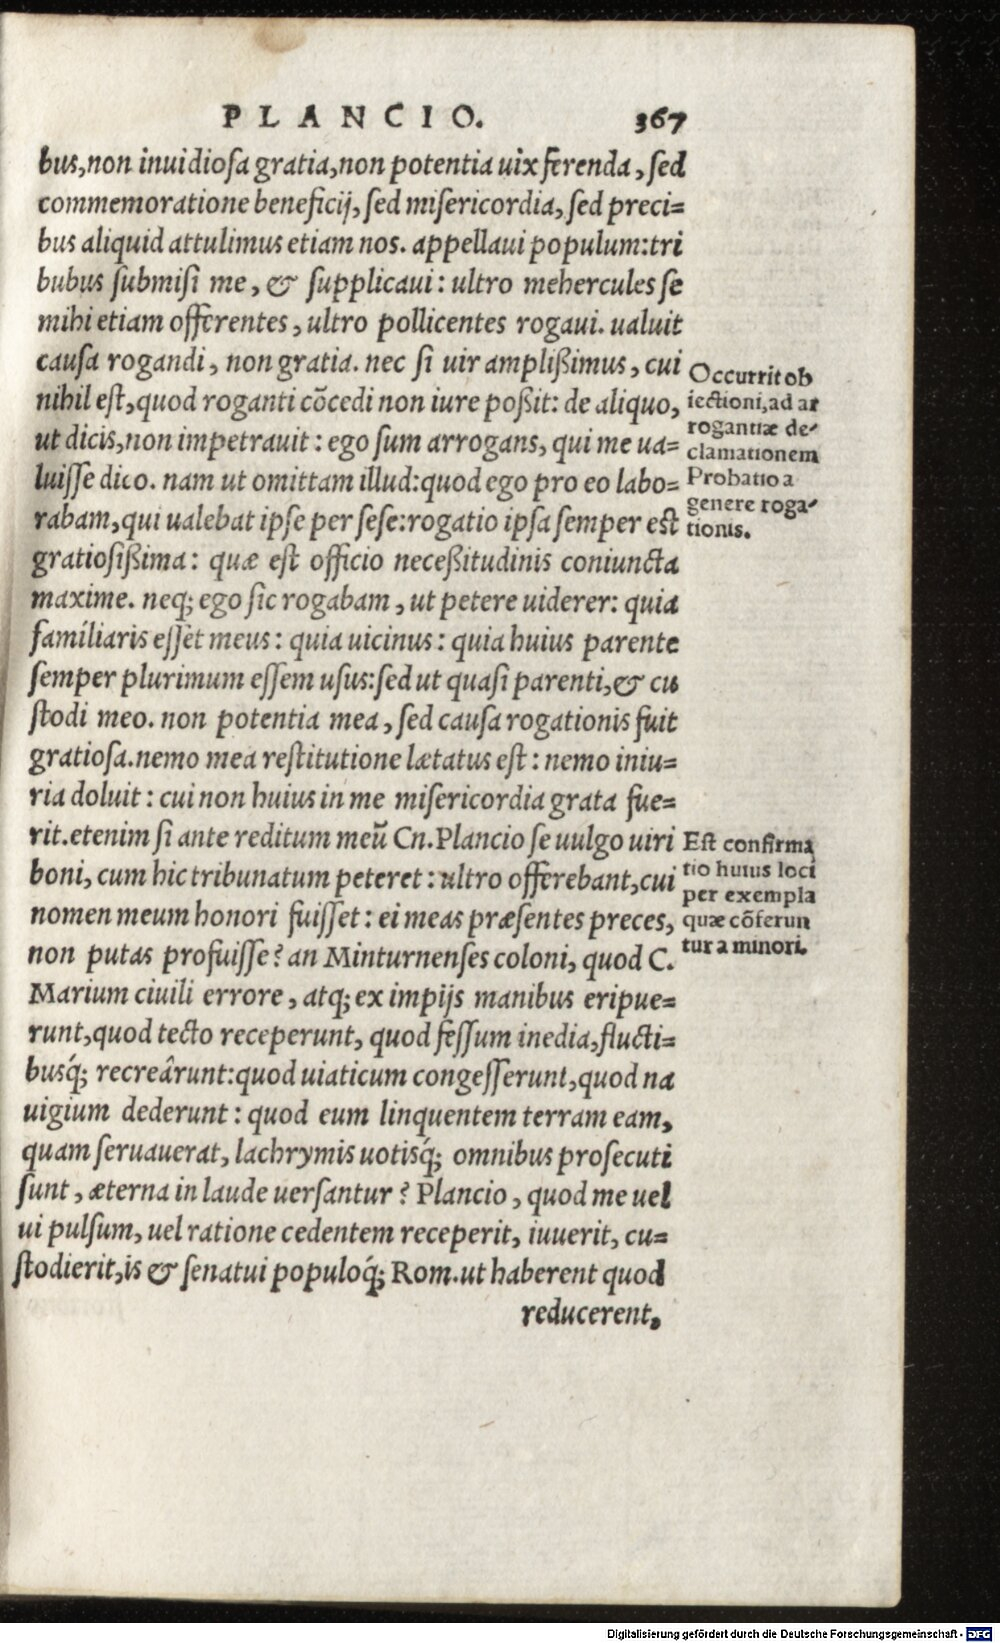 PLANCIO. 367
bus, non inuidiosa gratia, non potentia uix ferenda, sed
commemoratione beneficij, sed misericordia, sed preci=
bus aliquid attulimus etiam nos. appellaui populum: tri
bubus submisi me, & supplicaui: ultro mehercules se
mihi etiam offerentes, ultro pollicentes rogaui. ualuit
causa rogandi, non gratia. nec si uir amplißimus, cui
nihil est, quod roganti cõcedi non iure poßit: de aliquo,
ut dicis, non impetrauit: ego sum arrogans, qui me ua=
luisse dico. nam ut omittam illud: quod ego pro eo labo=
rabam, qui ualebat ipse per sese: rogatio ipsa semper est
gratiosißima: quæ est officio neceßitudinis coniuncta
maxime. neq; ego sic rogabam, ut petere uiderer: quia
familiaris esset meus: quia uicinus: quia huius parente
semper plurimum essem usus: sed ut quasi parenti, & cu
stodi meo. non potentia mea, sed causa rogationis fuit
gratiosa. nemo mea restitutione lætatus est: nemo iniu=
ria doluit: cui non huius in me misericordia grata fue=
rit. etenim si ante reditum meũ Cn. Plancio se uulgo uiri
boni, cum hic tribunatum peteret: ultro offerebant, cui
nomen meum honori fuisset: ei meas præsentes preces,
non putas profuisse? an Minturnenses coloni, quod C.
Marium ciuili errore, atq; ex impijs manibus eripue=
runt, quod tecto receperunt, quod fessum inedia, flucti=
busq́; recreârunt: quod uiaticum congesserunt, quod na
uigium dederunt: quod eum linquentem terram eam,
quam seruauerat, lachrymis uotisq́; omnibus prosecuti
sunt, æterna in laude uersantur? Plancio, quod me uel
ui pulsum, uel ratione cedentem receperit, iuuerit, cu=
stodierit, is & senatui populoq́; Rom. ut haberent quod
reducerent,
Occurrit ob
iectioni, ad ar
rogantiæ de-
clamationem
Probatio a
genere roga-
tionis.
Est confirma
tio huius loci
per exempla
quæ cõferun
tur a minori.
Digitalisierung gefördert durch die Deutsche Forschungsgemeinschaft - DFG